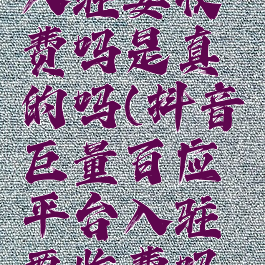 入驻要收
费吗是真
的吗(抖音
巨量百应
平台入驻
要收费吗